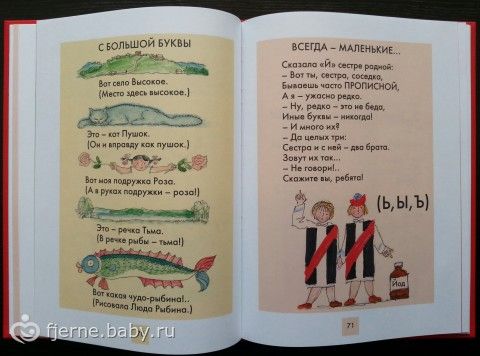 С БОЛЬШОЙ БУКВЫ
Вот село Высокое.
(Место здесь высокое.)
Это – кот Пушок.
(Он и вправду как пушок.)
Вот моя подружка Роза.
(А в руках подружки – роза!)
Это – речка Тьма.
(В речке рыбы – тьма!)
Вот какая чудо-рыбина!..
(Рисовала Люда Рыбина.)
ВСЕГДА – МАЛЕНЬКИЕ...
Сказала «Й» сестре родной:
– Вот ты, сестра, соседка,
Бываешь часто ПРОПИСНОЙ,
А я – ужасно редко.
– Ну, редко – это не беда,
Иные буквы – никогда!
– И много их?
– Да целых три:
Сестра и с ней – два брата.
Зовут их так...
– Не говори!..
Скажите вы, ребята!
(Ь,Ы,Ъ)
Йод
71
fjerne.baby.ru